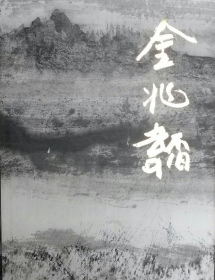 金兆韜